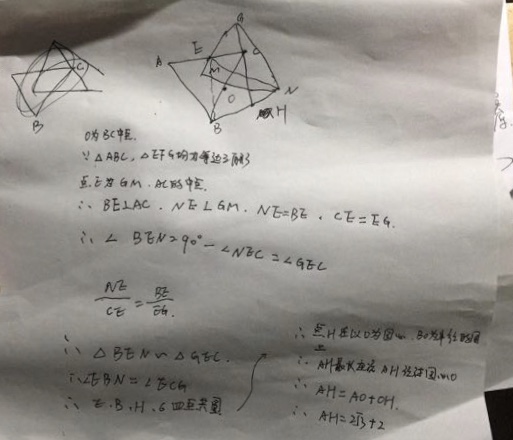 G
E
C
A
M
N
O
B
H
C
B
O为BC中点.
∵ △ABC, △EFG均为等边三角形
点E为GM、AC的中点.
∴ BE⊥AC . NE⊥GM . NE=BE . CE=EG.
∴ ∠BEN=90°-∠NEC=∠GEC
NE/CE = BE/EG.
∴ △BEN∽△GEC.
∴∠EBN=∠ECG
∴ E.B.H.G四点共圆
∴ 点H在以O为圆心, BO为半径的圆
上
∴ AH最长应该AH经过圆心O
∴ AH=AO+OH.
∴ AH=2√3+2